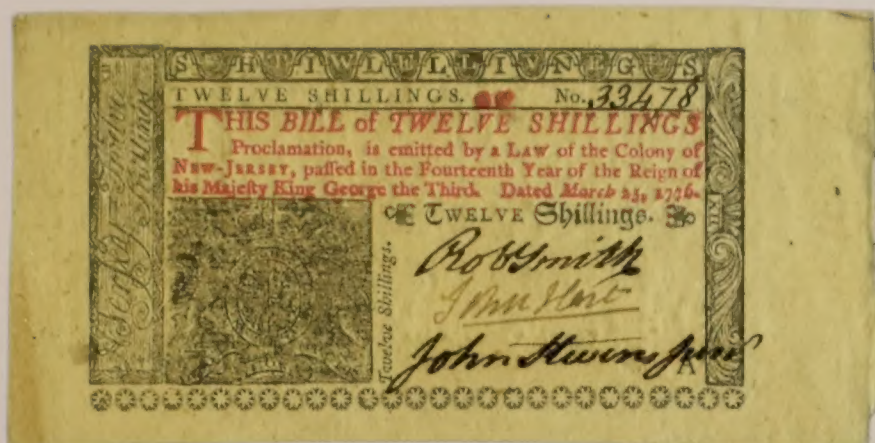 SHTIWLELLIVNEGS
TWELVE SHILLINGS. No. 33478
THIS BILL of TWELVE SHILLINGS
Proclamation, is emitted by a LAW of the Colony of
NEW-JERSEY, paſſed in the Fourteenth Year of the Reign of
his Majeſty King George the Third. Dated March 25, 1776.
TWELVE Shillings.
Twelve Shillings.
Robt Smith
John Hart
John Stevens Junr
A
Jerſey
Twelve
Shillings